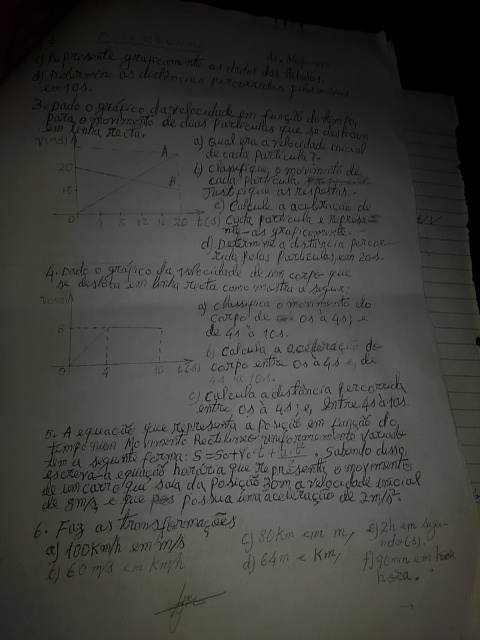 c) Represente graficamente os dados das tabelas.
d) Determine as distâncias percorridas pelos móveis
em 10s.
3. Dado o gráfico da velocidade em função do tempo,
para o movimento de duas partículas que se deslocam
em linha recta.
V(m/s)
20
10
0
4
8
12
16
20
t(s)
A
B
a) Qual era a velocidade inicial
de cada partícula?
b) Classifique o movimento de
cada partícula
Justifique as respostas.
c) Calcule a aceleração de
cada partícula e represe
nte-as graficamente.
d) Determine a distância percor-
rida pelas partículas em 20s.
4. Dado o gráfico da velocidade de um corpo que
se desloca em linha recta como mostra a seguir:
V(m/s)
8
0
4
10
t(s)
a) Classifica o movimento do
corpo de 0s à 4s; e
de 4s à 10s.
b) Calcula a aceleração do
corpo entre 0s à 4s e, de
4s à 10s.
c) Calcula a distância percorrida
entre 0s à 4s; e, Entre 4s à 10s.
5. A equação que representa a posição em função do
tempo num Movimento Rectilíneo uniformemente Variado
tem a seguinte forma: S=So+Vot+ . Sabendo disso,
escreva a equação horária que representa o movimento
de um carro que saia da posição 30m a velocidade inicial
de 8m/s e que possua uma aceleração de 2m/s².
6. Faz as transformações
a) 100Km/h em m/s
b) 60 m/s em Km/h
c) 80Km em m,
d) 64m e Km,
e) 2h em segu-
ndo(s).
f) 90mn em
hora.